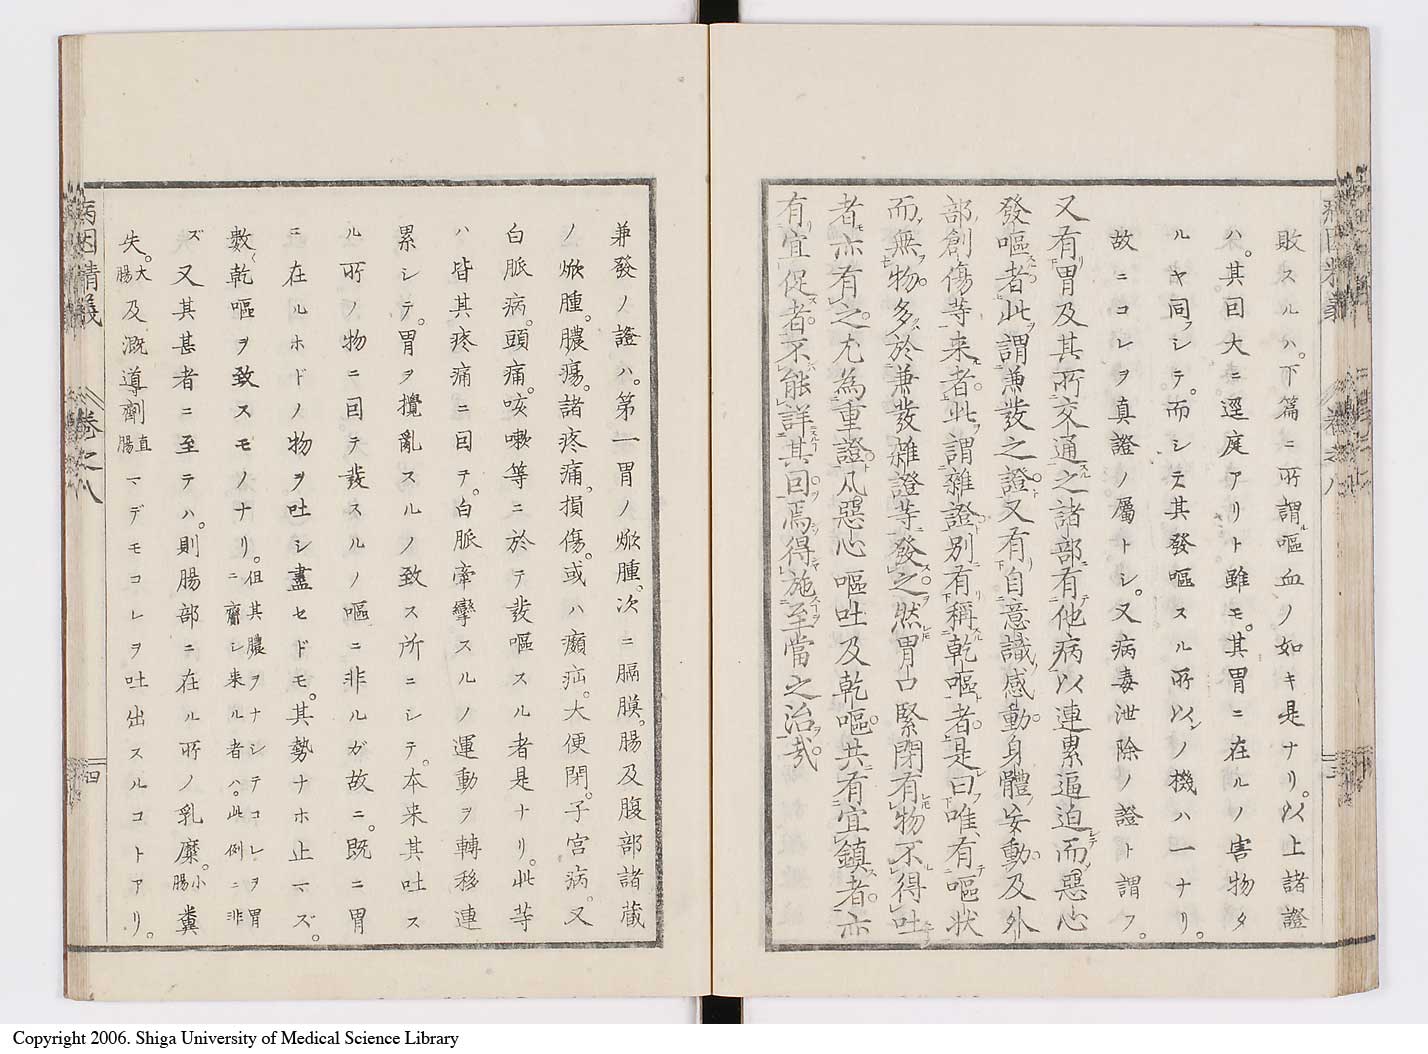 敗スルハ。下篇ニ所謂嘔血ノ如キ是ナリ。以上諸證
ハ。其因大ニ逕庭アリト雖モ。其胃ニ在ルノ害物タ
ルヤ同フシテ。而シテ其發嘔スル所以ンノ機ハ一ナリ。
故ニコレヲ真證ノ屬トシ。又病毒泄除ノ證ト謂フ。
又有胃及其所交通之諸部有他病以連累逼迫而惡心
發嘔者此謂兼發之證又有自意識感動身體妄動及外
部創傷等来者此謂雜證別有稱乾嘔者是曰唯有嘔状
而無物多於兼發雜證等發之然胃口緊閉有物不得吐
者亦有之尤為重證凡惡心嘔吐及乾嘔共有宜鎮者亦
有宜促者不能詳其因焉得施至當之治哉
兼發ノ證ハ。第一胃ノ焮腫。次ニ膈膜。腸及腹部諸蔵
ノ焮腫。膿瘍。諸疼痛。損傷。或ハ癲疝。大便閉。子宮病。又
白脈病。頭痛。咳嗽等ニ於テ發嘔スル者是ナリ。此等
ハ皆其疼痛ニ因テ。白脈牽攣スルノ運動ヲ轉移連
累シテ。胃ヲ攪亂スルノ致ス所ニシテ。本来其吐ス
ル所ノ物ニ因テ發スルノ嘔ニ非ルガ故ニ。既ニ胃
ニ在ルホドノ物ヲ吐シ盡セドモ。其勢ナホ止マズ。
數〱乾嘔ヲ致スモノナリ。但其膿ヲナシテコレヲ胃ニ齎シ来ル者ハ。此例ニ非
ズ又其甚者ニ至テハ。則腸部ニ在ル所ノ乳糜。小腸糞
失。大腸及溉導劑直腸マデモコレヲ吐出スルコトアリ。
病因精義
卷之八
四